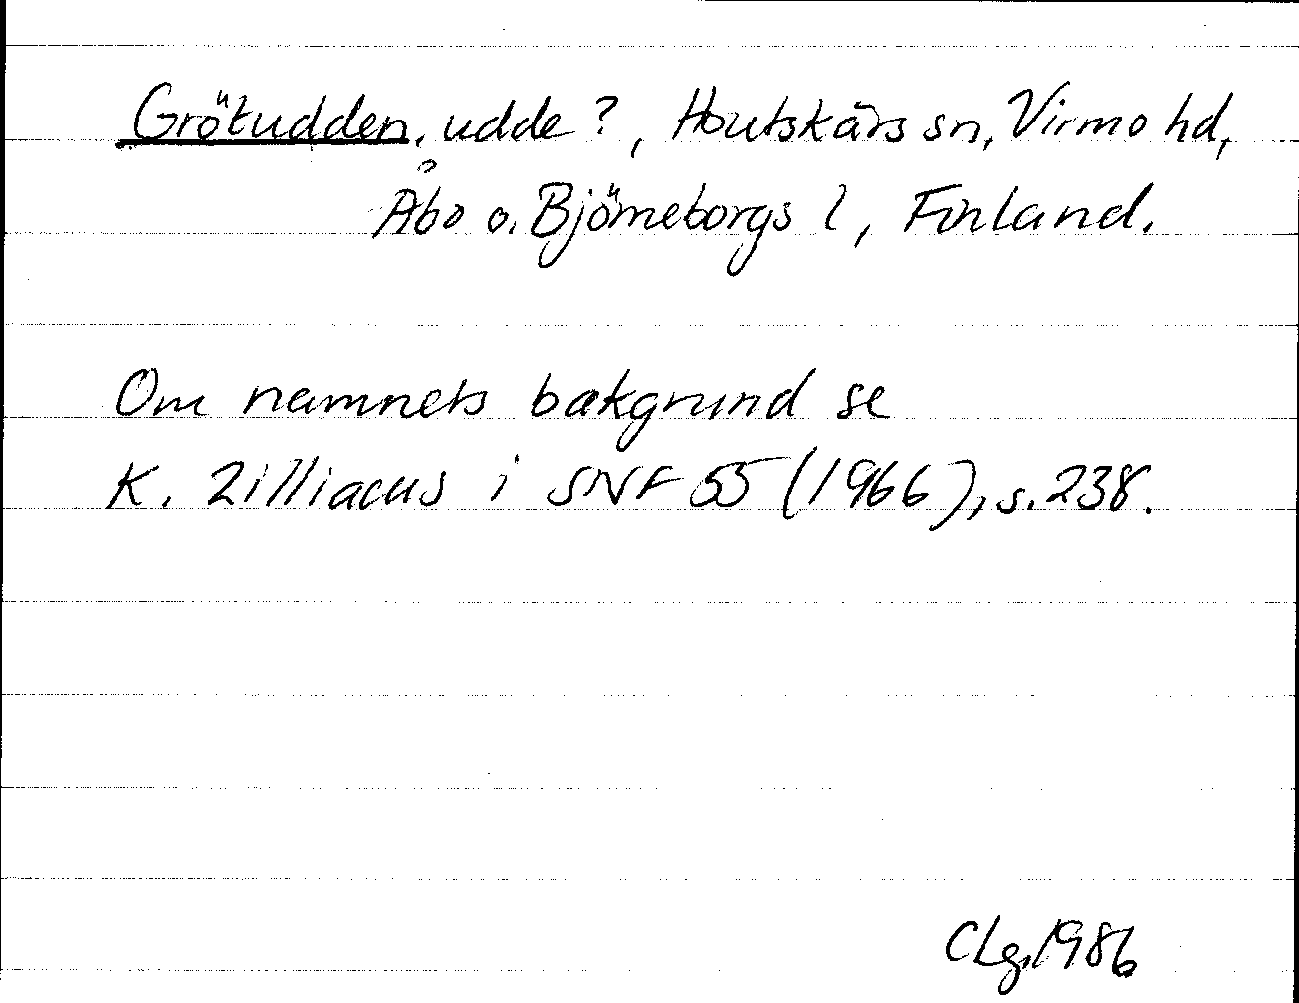 Grötudden, udde?, Houtskärs sn, Virmo hd,
Åbo o. Björneborgs l, Finland.
Om namnets bakgrund se
K. Zilliacus i SNF 55 (1966), s. 238.
CLg, 1986